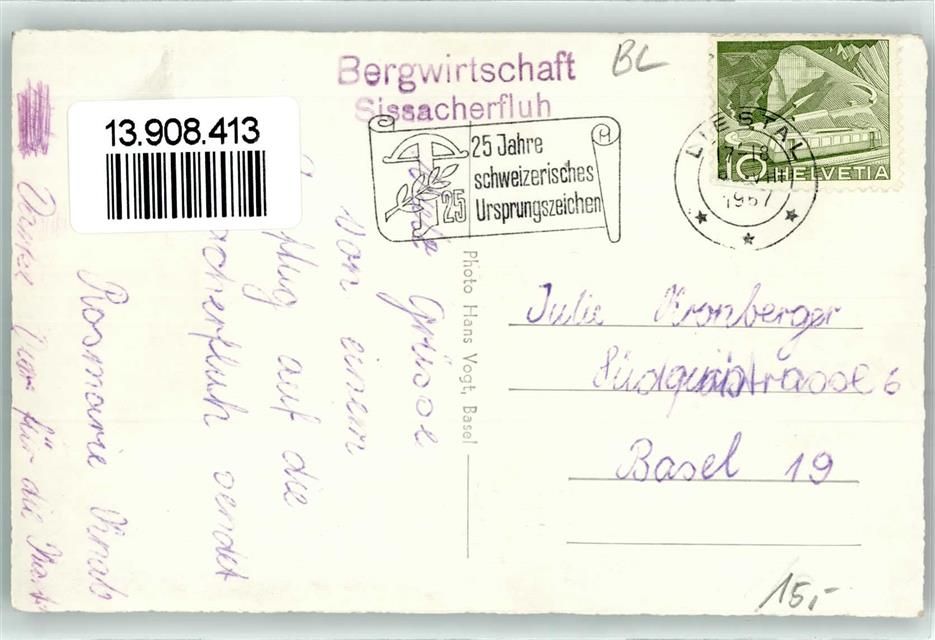 Bergwirtschaft
Sissacherfluh
BL
13.908.413
25 Jahre
schweizerisches
Ursprungszeichen
25
LIESTAL
17-18
1957
10 HELVETIA
Photo Hans Vogt, Basel
Grüsse
von einem
auf die
sendet
Rosmarie
für die
Julie Kronberger
6
Basel 19
15,-